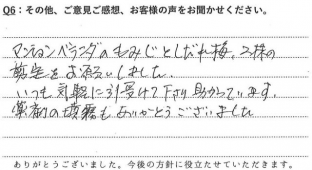 Q6:その他、ご意見ご感想、お客様の声をお聞かせください。
マンションベランダのもみじとしだれ梅、2株の
剪定をお願いしました。
いつも気軽に引受けて下さり助かっています。
薬剤の噴霧もありがとうございました
ありがとうございました。今後の方針に役立たせていただきます。